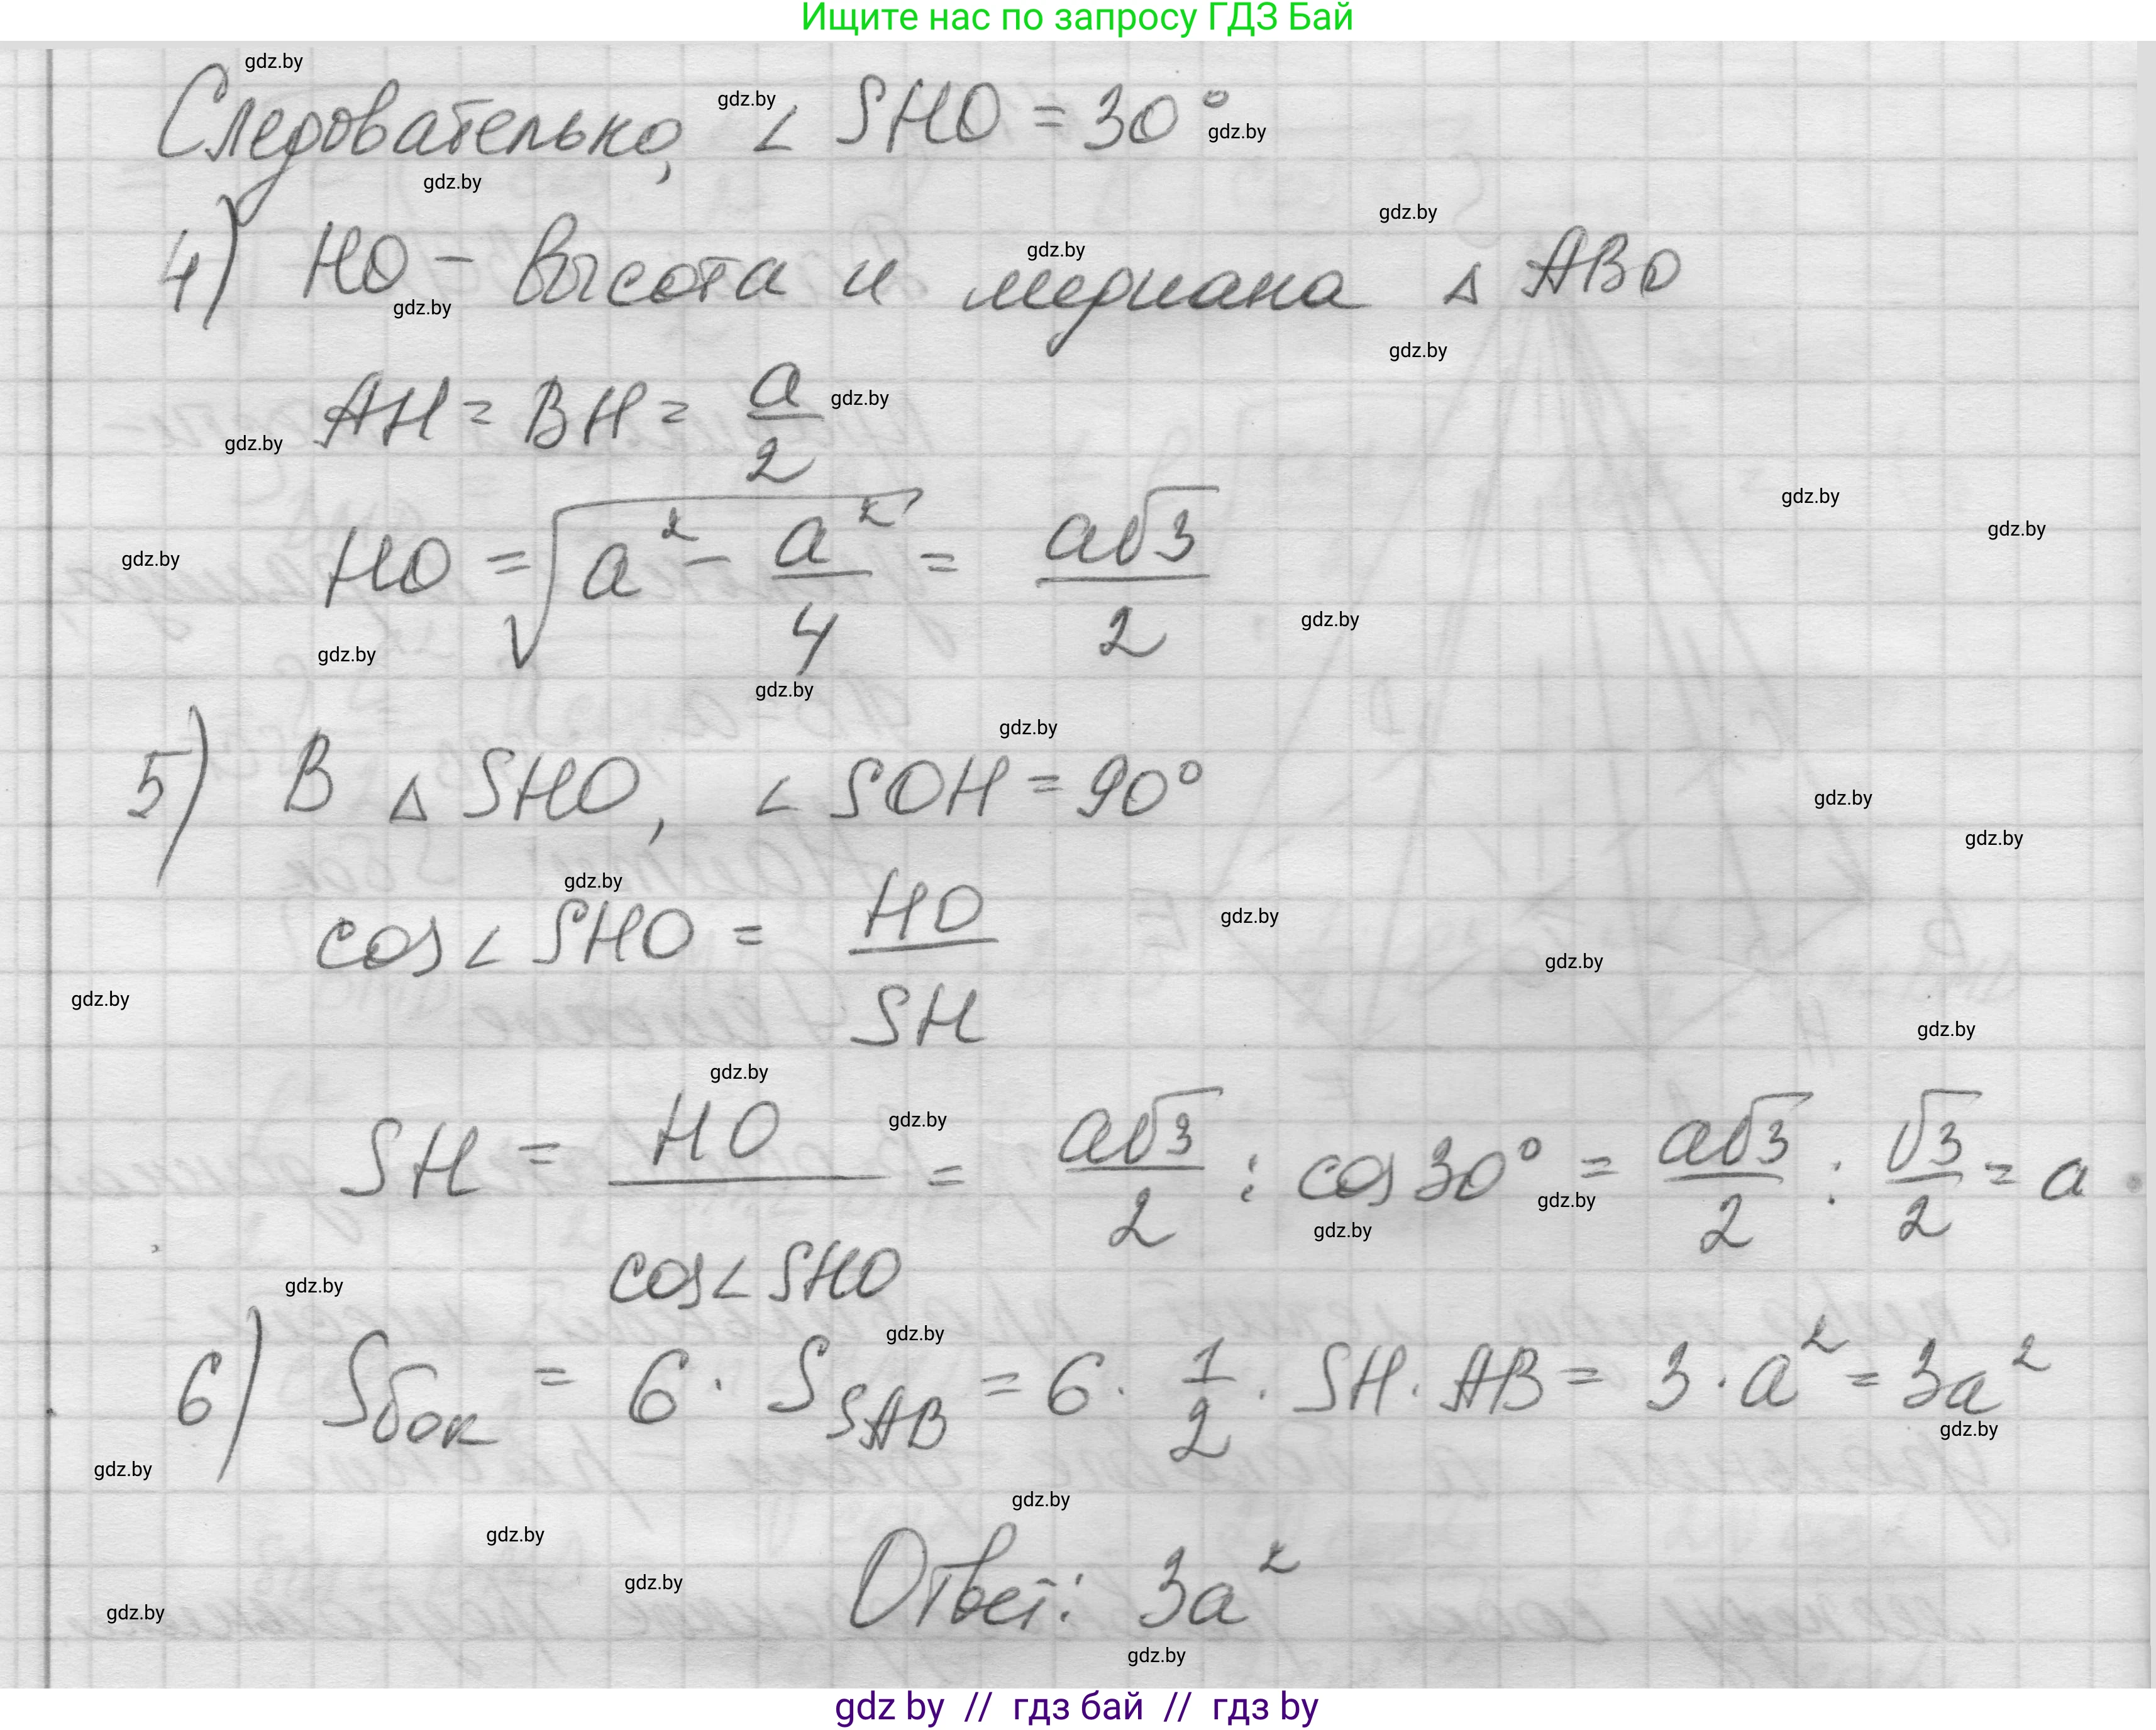 Ищите нас по запросу ГДЗ Бай
Следовательно, ∠ SHO = 30°
4) HO – высота и медиана △ ABO
AH = BH = a/2
HO = √(a² − a²/4) = a√3/2
5) В △ SHO, ∠ SOH = 90°
cos∠ SHO = HO/SH
SH = HO/cos∠SHO = a√3/2 : cos 30° = a√3/2 : √3/2 = a
6) Sбок = 6 · S_SAB = 6 · 1/2 · SH · AB = 3 · a² = 3a²
Ответ: 3a²
gdz by // гдз бай // гдз by
gdz.by